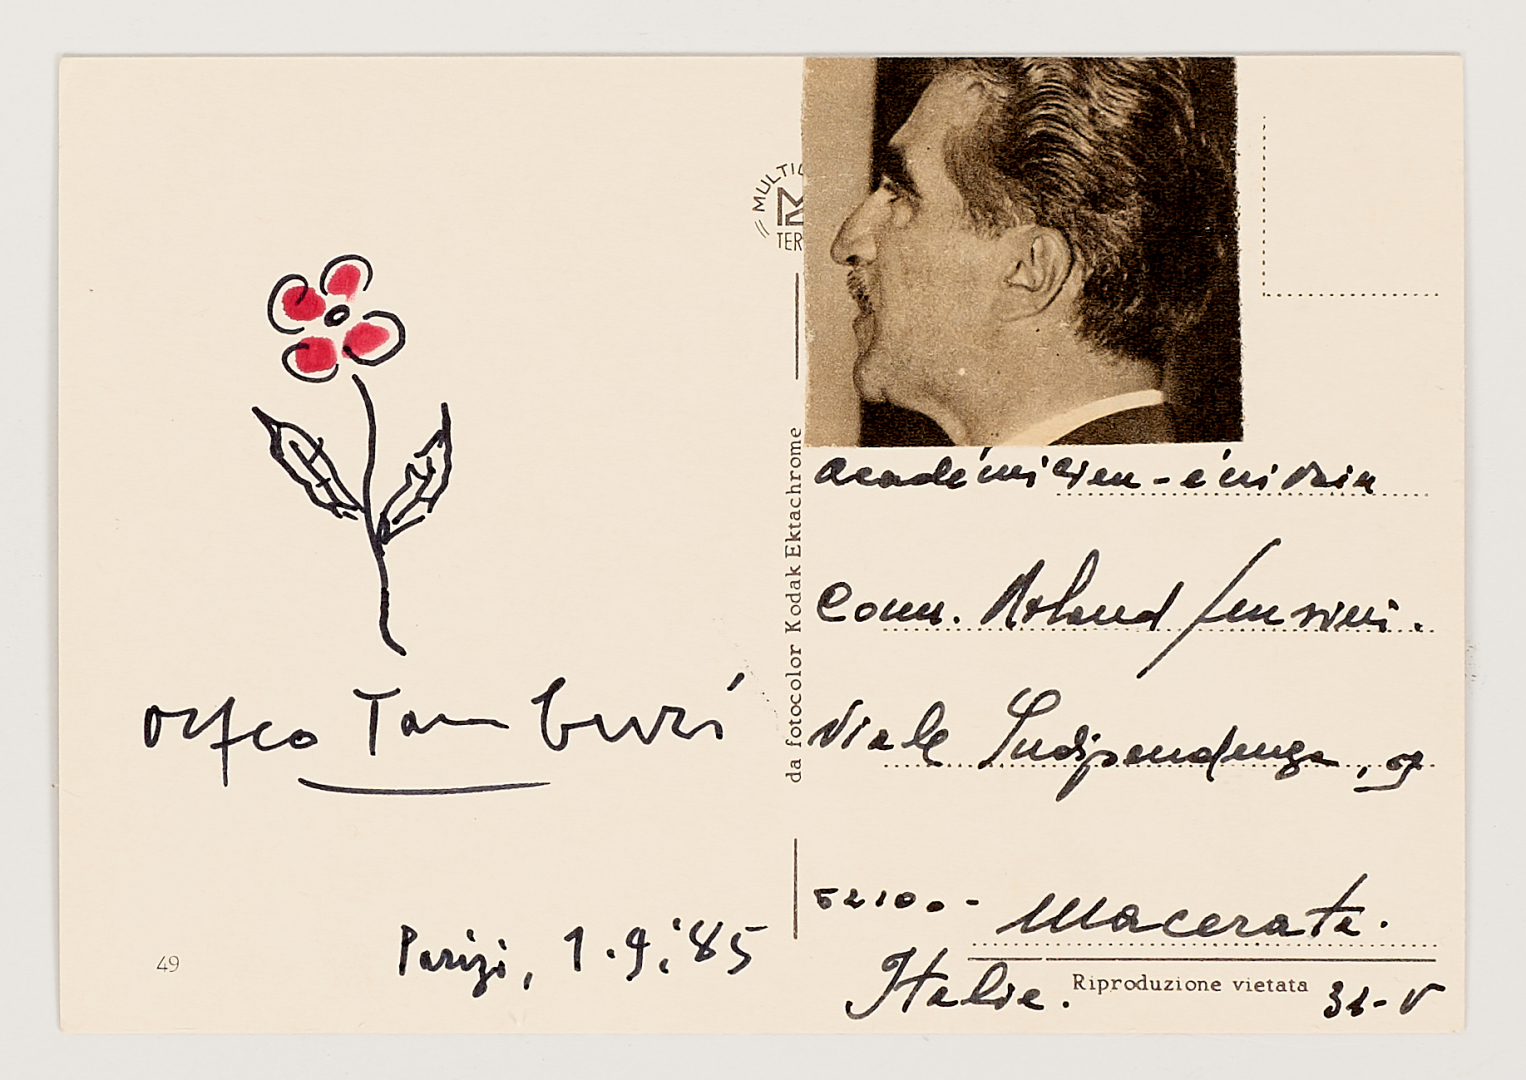 orfeo Tamburi
Parigi, 1.9.'85
49
MULTIC
TER
da fotocolor Kodak Ektachrome
académicien-écrivain
Comm. Roland
Viale Indipendenza,
62100- Macerata.
Italie.
Riproduzione vietata